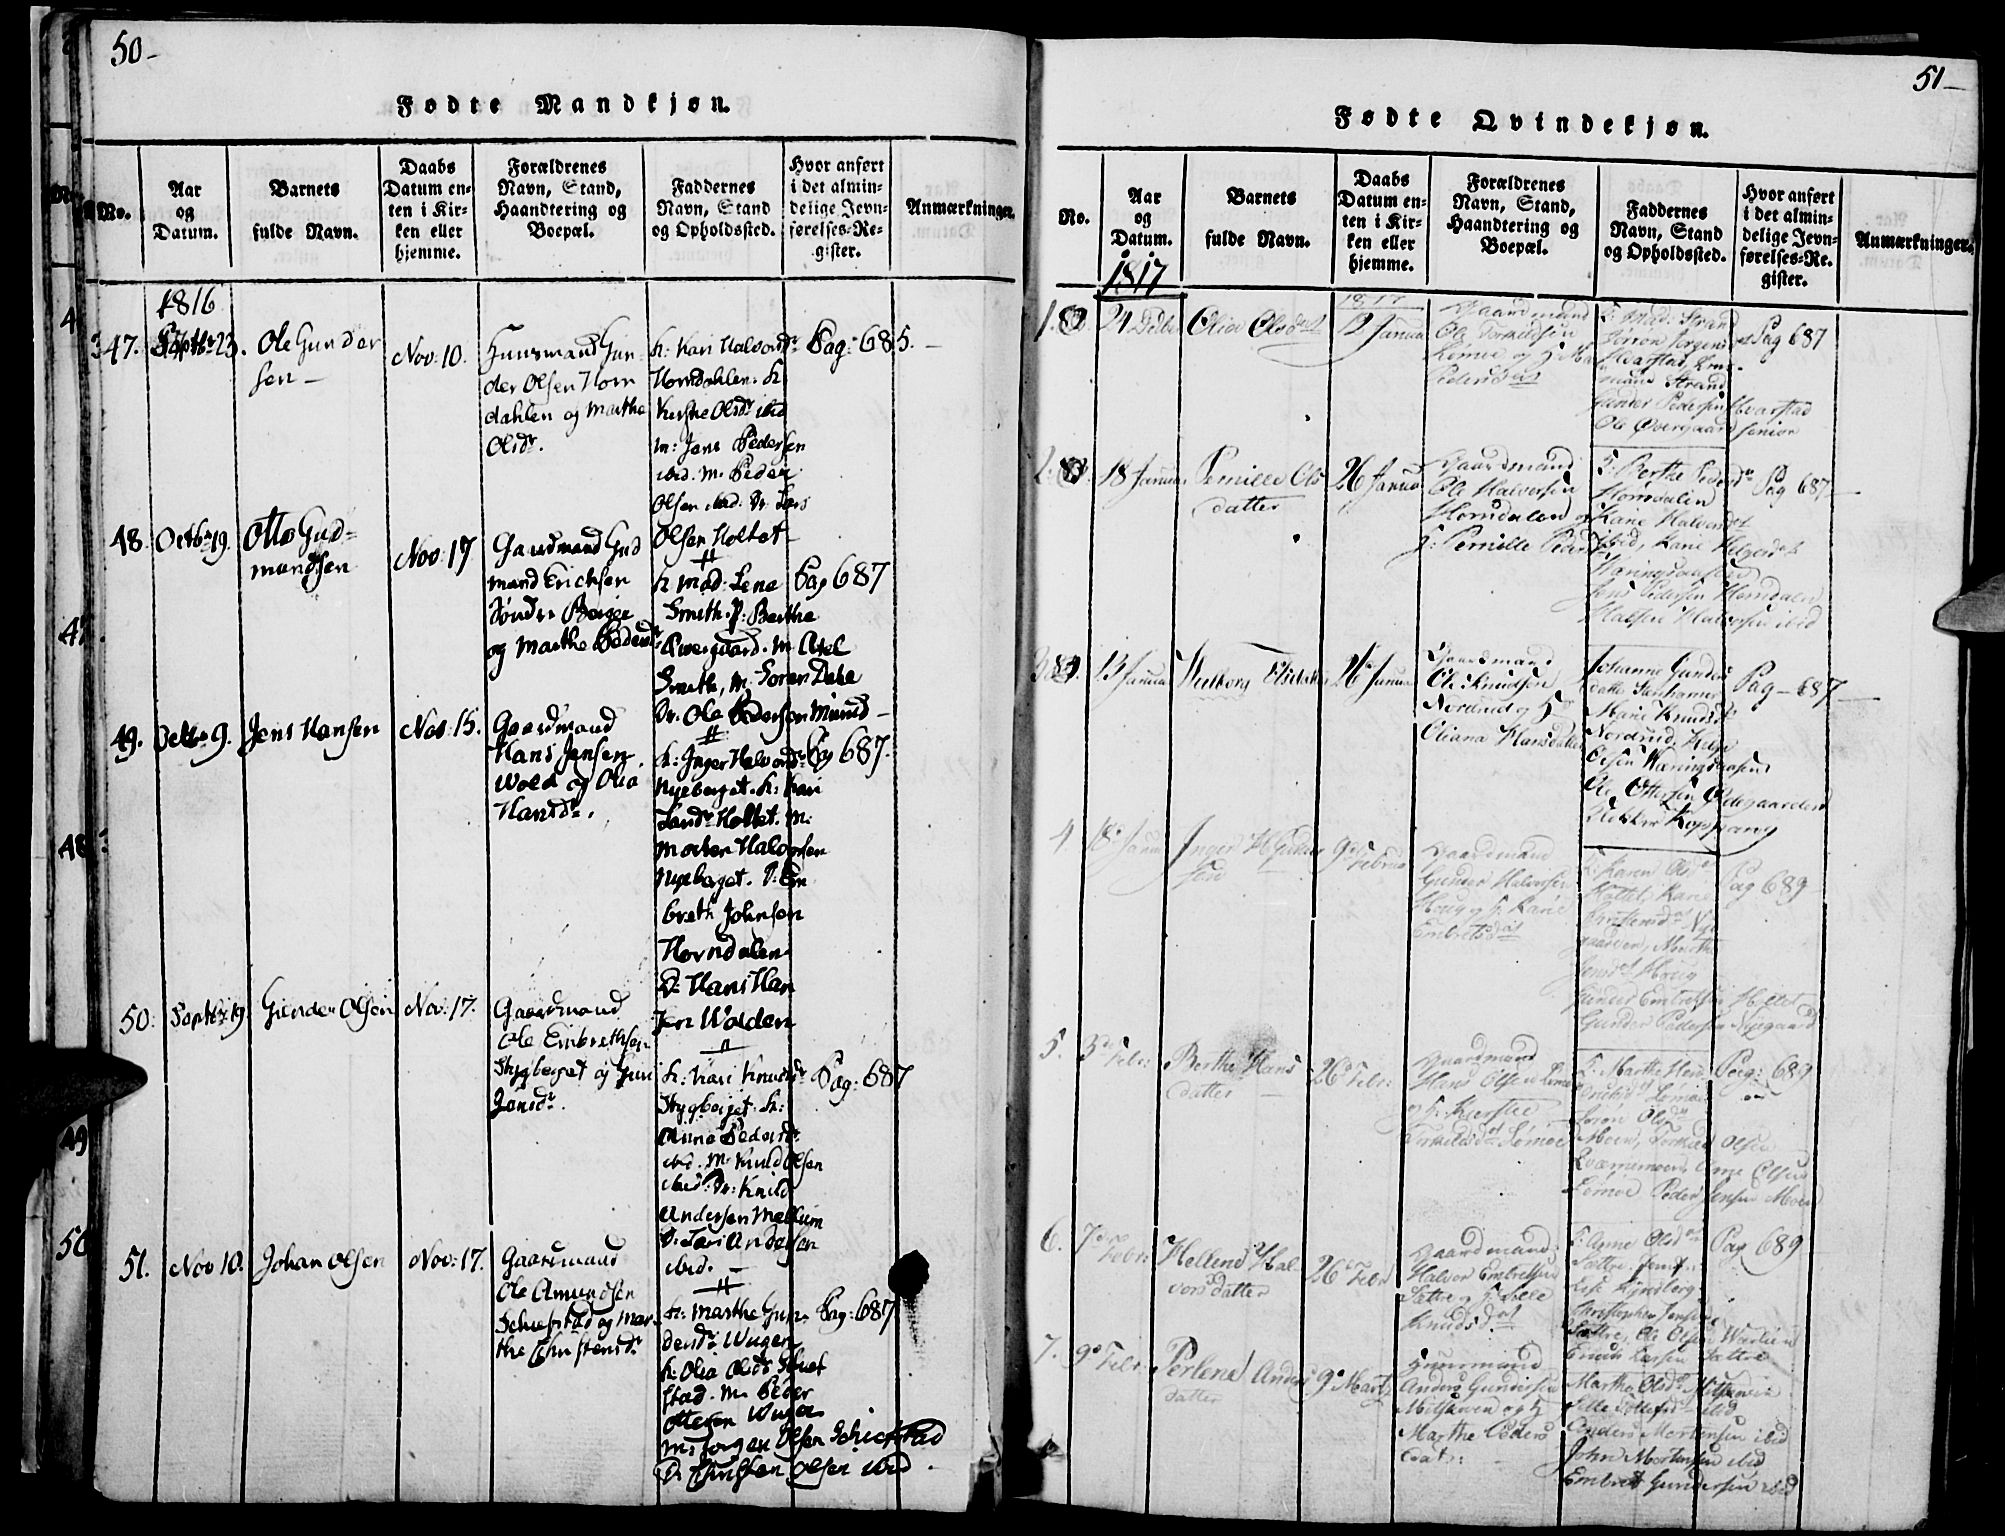 50-
Fødte Mandkjøn.
No.
Aar
og
Datum.
Barnets
fulde Navn.
Daabs
Datum en-
ten i Kir-
ken eller
hjemme.
Forældrenes
Navn, Stand,
Haandtering og
Boepæl.
Faddernes
Navn, Stand
og Opholdssted.
Hvor anført
i det almin-
delige Jevn-
førelses-Re-
gister.
Anmærkninger.
1816
47.
Septbr 23.
Ole Gunder
sen -
Nov: 10.
Huusmand Gun-
der Olsen Horn
dahlen og Marthe
Olsdr.
K: Kari Halvorsdr
Horndahlen. K:
Kirstie Olsdr ibid
M: Jens Pedersen
ibid. M. Peder
Olsen ibid. Dr. Lars
Olsen Holtet
Pag: 685. -
48.
Octbr 19.
Otto Gud-
mundsen
Nov: 17
Gaardmand Gud
mand Erichsen
Søndre Berge
og Marthe Pedersdr
K Mad: Lena
Smith. P: Berthe
Øwergaard. M. Axel
Smith, M. Soren Dahl
Dr. Ole Pedersen Miund -
Pag 687
49.
Octbr 9.
Jens Hansen
Nov: 15.
Gaardmand
Hans Jensen
Wold og Olia
Hansdr.
K: Inger Halvorsdr
Nyeberget. K: Kari
Holtet. M:
Morten Halvorsen
Nyeberget. D: Em
breth Johnsen
Horndalen
D: Hans Han
sen Wolden
Pag 687.
50.
Septbr 19
Gunder Olsen
Nov: 17.
Gaardmand
Ole Embrethsen
Stygberget og Guri
Jonsdr.
K: Kari Knudsdr
Stygberget. K:
Anne Pedersdr
ibid. M: Knud Olsen
ibid. Dr: Knud
Andersen Mellum
D: Lars Andersen
ibid. -
Pag: 687
51.
Nov 10.
Johan Olsen
Nov: 17.
Gaardmand
Ole Amundsen
Schiefstad og Mar-
the Christensdr
K: Marthe Gun-
dersdr Wugen
K: Olia Olsdr Schief
stad. M. Peder
Ottesen Wugen
M: Jørgen Olsen Schiefstad
D. Christen Olsen ibid.
Pag: 687
51-
Fødte Qvindekjøn.
No.
Aar
og
Datum.
Barnets
fulde Navn.
Daabs
Datum en-
ten i Kir-
ken eller
hjemme.
Forældrenes
Navn, Stand,
Haandtering og
Boepæl.
Faddernes
Navn, Stand
og Opholdssted.
Hvor anført
i det almin-
delige Jevn-
førelses-Re-
gister.
Anmærkninger.
1817
1.
24 Decbr
Olia Olsdat
1817
12 Janua
Gaardmand
Ole Torkildsen
Lømoe og H: Ma
Pedersdat
F: Mad: Strand
Jørgensdat
Hvarstad,
Strand
Gunder Pedersen Hvarstad
Ole Øvergaard senior
Pag 687
2.
18 Januar
Pernille Ols
datter
26 Janua
Gaardmand
Ole Halvorsen
Horndalen og
H: Pernille Peders
F: Berthe Pedersdr
Horndalen
Karie Halvorsdt
ibid, Karie Helgesdt
Jens Pedersen Horndalen
Halvor Halvorsen ibid
Pag 687 -
3
13 Januar
26 Januar
Gaardmand
Ole Knudsen
Nordrud og H:
Oliana Hansdatter
Johanne Gunders
datter
Marie Knudsdt
Nordrud, Helge
Olsen
Ole Ottersen Ødegaarden
Klokker Koppang
Pag - 687 -
4.
18 Janua
Inger
9de Februar
Gaardmand
Gunder Halvorsen
Houg og H: Karie
Embretsdat
F: Karen Olsdr
Holtet, Karie
Nye
gaarden, Marthe
Jensdt Houg
Gunder Embretsen Holtet
Gunder Pedersen Nyegaard
Pag 689
5.
3de Febr:
Berthe Hans
datter -
26de Febr:
Gaardmand
Hans Olsen Lømoe
og H: Kierstie
Torkildsdat Lømoe
F: Marthe
Lømoe
Olsdr
Moen, Torkild Olsen
Kværnmoen, Arne Olsen
Lømoe Peder Jensen Moen
Pag: 689
6.
7de Febr:
Hellene Hal
vorsdatter
26de Febr
Gaardmand
Halvor Embretsen
Sætre og H: Sille
Knudsdat
F: Agne Olsdr
Sætre,
Lise Kyndberg
Christopher Jensen
Sætre, Ole Olsen
Knud Larsen Sætre
Pag 689
7.
9de Febr:
Perlene Anders
datter
9de Martz
Huusmand
Anders Gundersen
Mitskoven og H:
Marthe Peders
dat: -
Marthe Olsdr Mitskoven
ibid
Anders Mortensen ibid
John Mortensen ibid
Embret Gundersen ibid